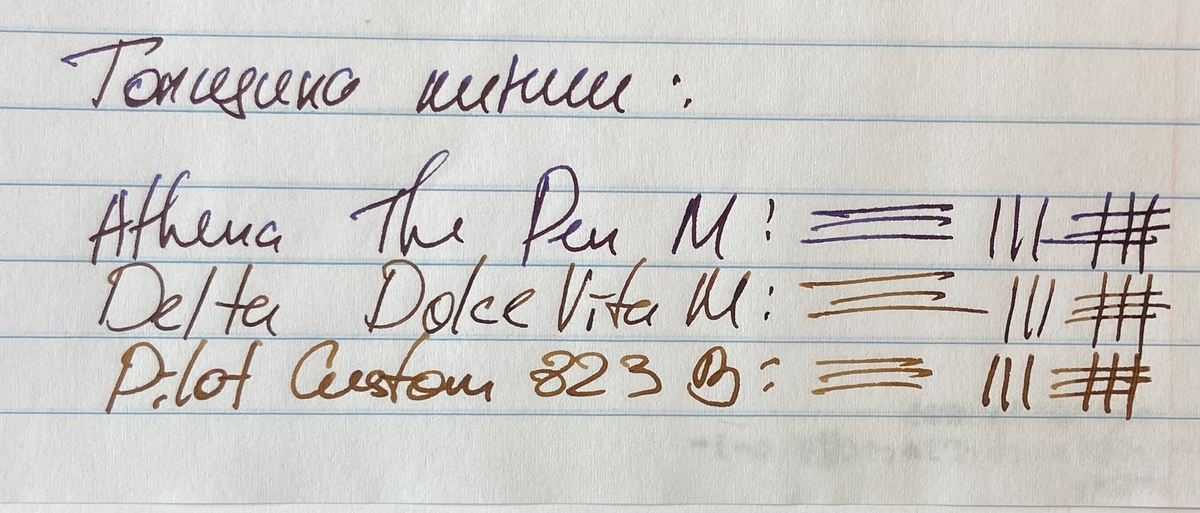 Толщина линии:
Athena The Pen M:
Delta Dolce Vita M:
Pilot Custom 823 B: